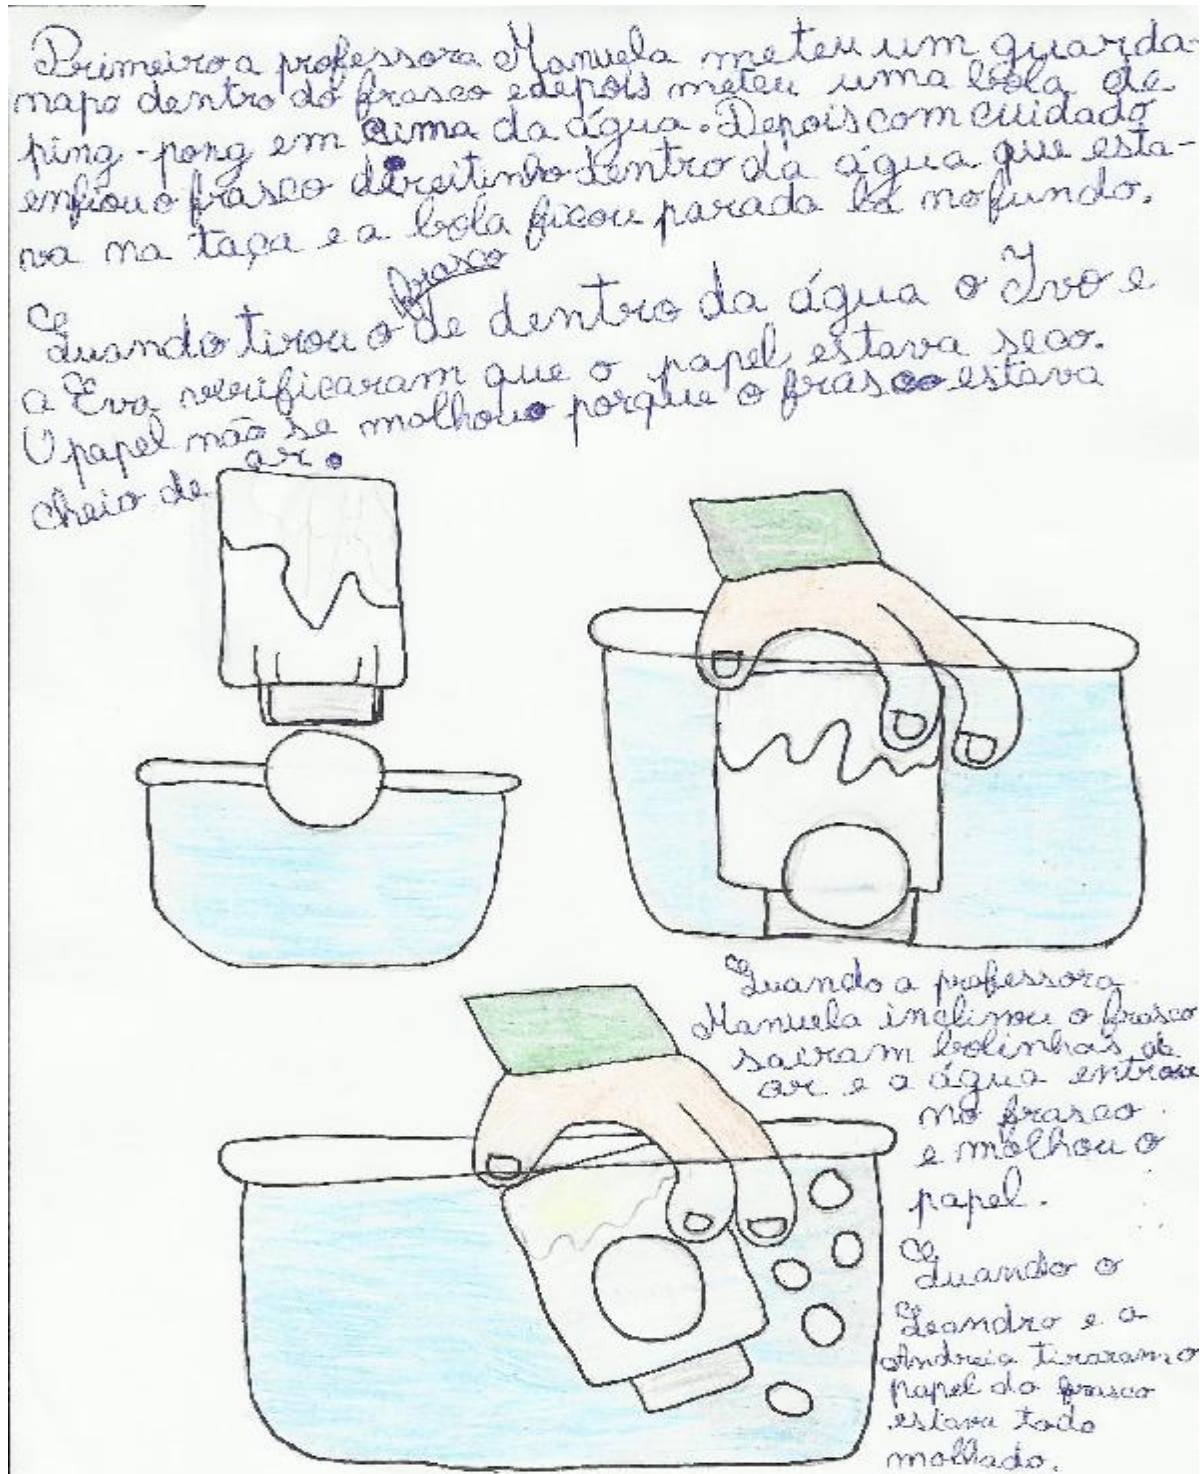 Primeiro a professora Manuela meteu um guarda-
napo dentro do frasco e depois meteu uma bola de
ping-pong em cima da água. Depois com cuidado
enfiou o frasco direitinho dentro da água que esta-
va na taça e a bola ficou parada lá no fundo.
Quando tirou o frasco de dentro da água o Ivo e
a Eva verificaram que o papel estava seco.
O papel não se molhou porque o frasco estava
cheio de ar.
Quando a professora
Manuela inclinou o frasco
sairam bolinhas de
ar e a água entrou
no frasco
e molhou o
papel.
Quando o
Leandro e a
Andreia tiraram o
papel do frasco
estava todo
molhado.